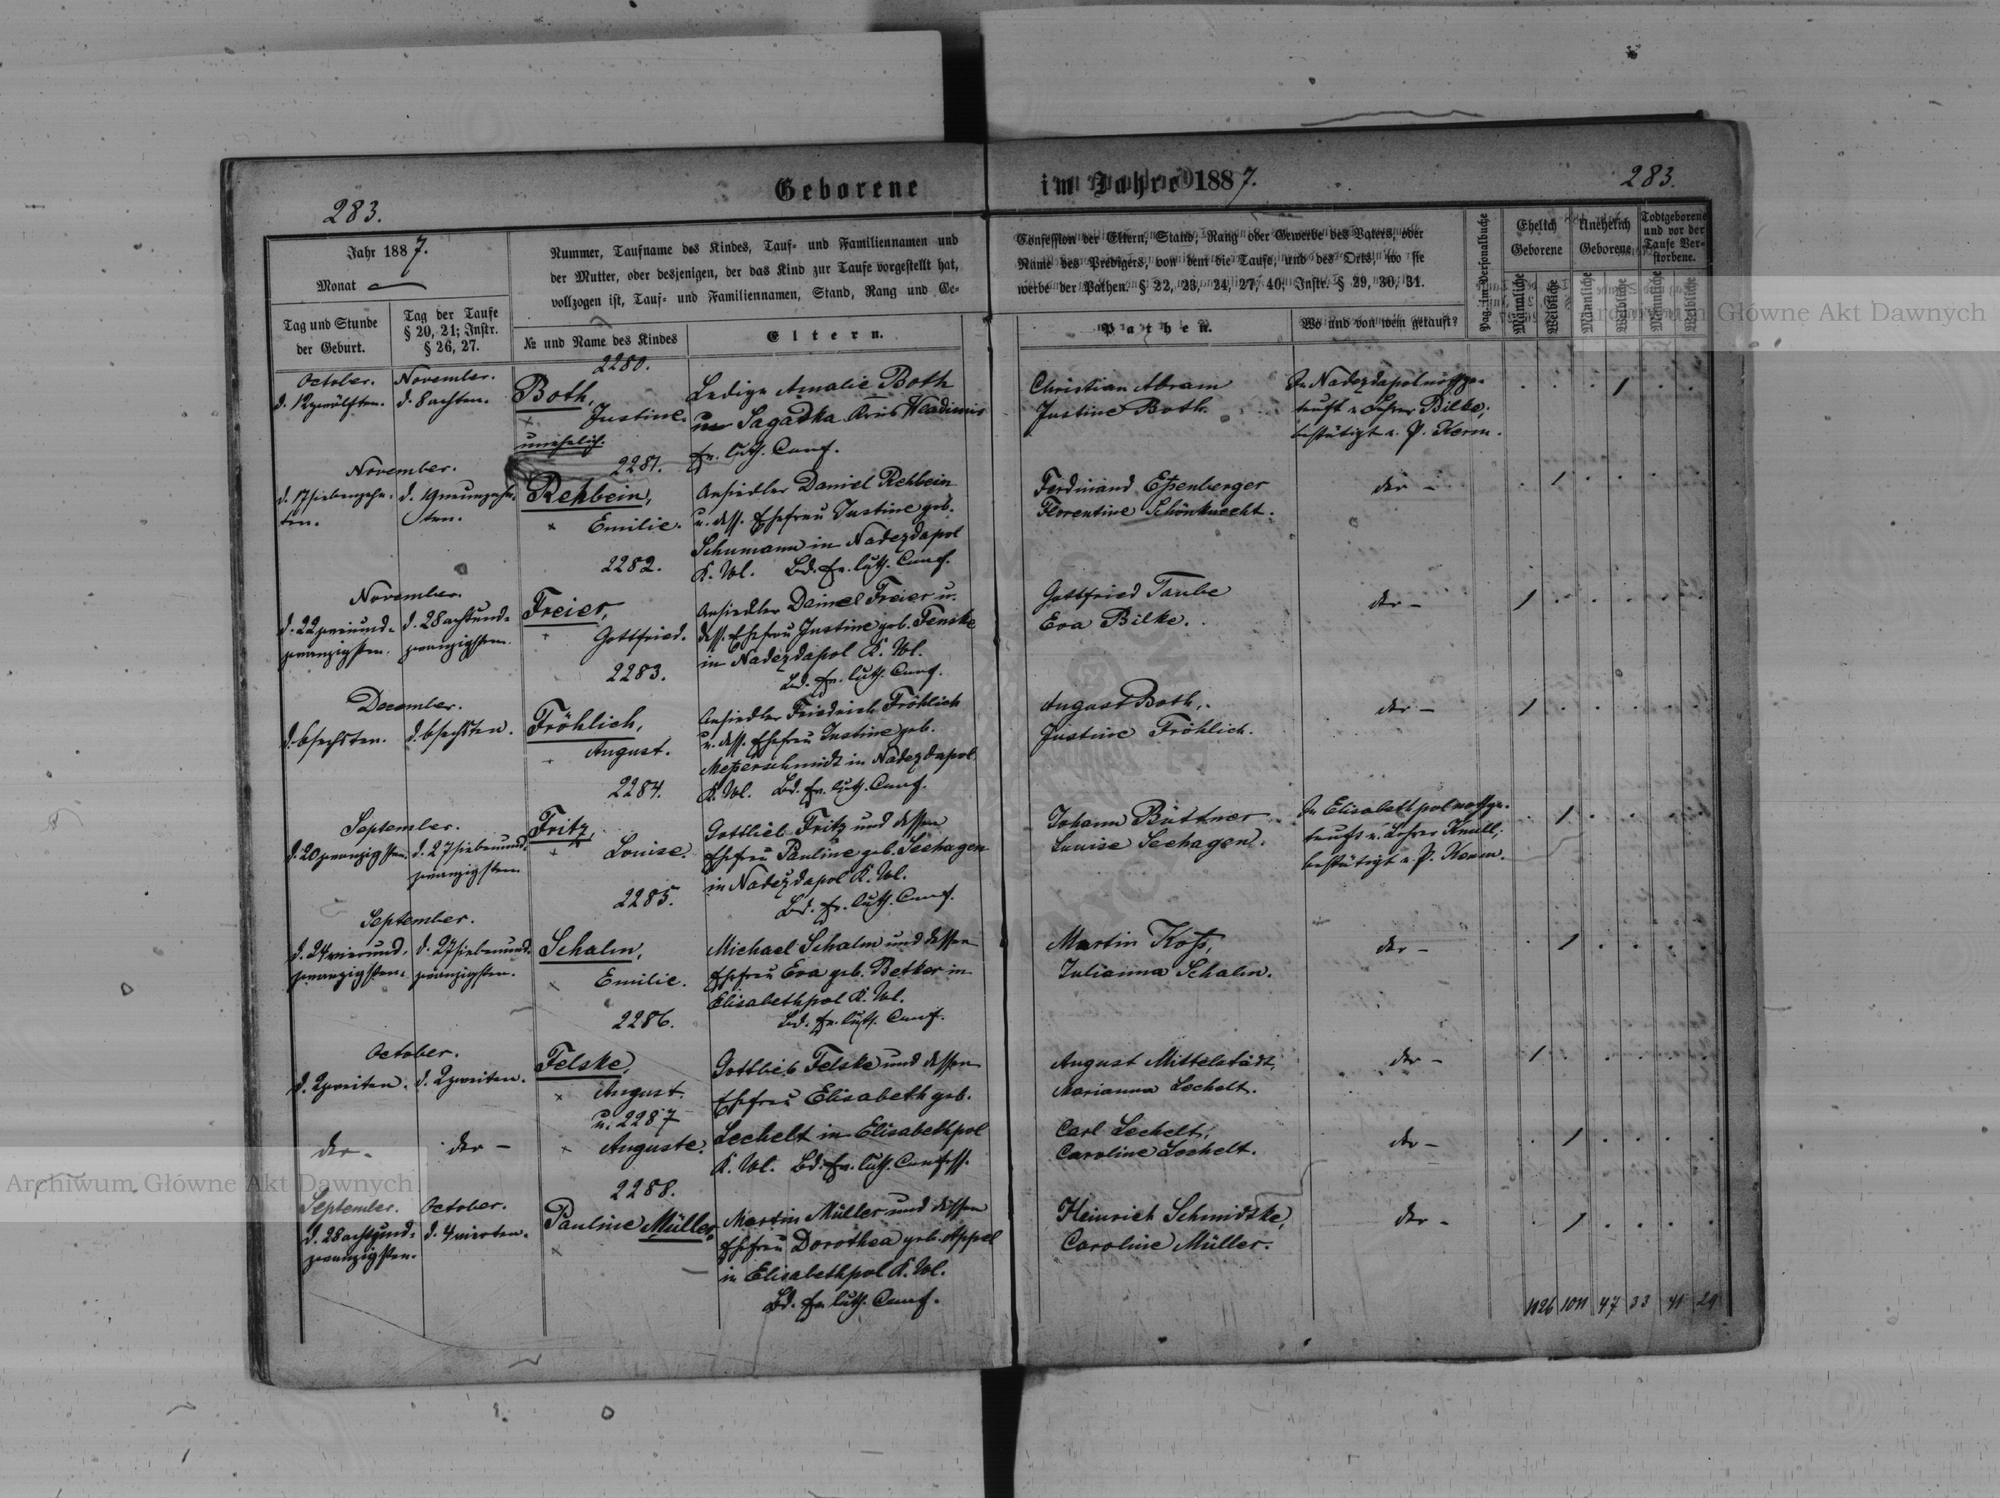 Geborene im Jahre 1887.
283.
283.
Jahr 1887.
Monat
Tag und Stunde
der Geburt.
Tag der Taufe
§ 20, 21; Instr.
§ 26, 27.
Nummer, Taufname des Kindes, Tauf- und Familiennamen und
der Mutter, oder desjenigen, der das Kind zur Taufe vorgestellt hat,
vollzogen ist, Tauf- und Familiennamen, Stand, Rang und Ge-
№ und Name des Kindes
Eltern.
Confession der Eltern, Stand, Rang oder Gewerbe des Vaters, oder
Name des Predigers, von dem die Taufe, und des Orts, wo sie
werbe der Pathen. § 22, 23, 24, 27, 40, Instr. § 29, 30, 31.
Pathen.
Wo und von wem getauft?
Pag. im Personalbuche
Ehelich
Geborene
Unehelich
Geborene
Todtgeborene
und vor der
Taufe Ver-
storbene.
Männliche
Weibliche
Männliche
Weibliche
Männliche
Weibliche
2280.
October.
d. 12 zwölften.
November.
d. 8 achten.
Both,
Justine.
unehelich.
Ledige Amalie Both
Sagadka
ev. luth. Conf.
Christian Abram
Justine Both.
In Nadezdapol nothge-
tauft v. Lehrer Bilke;
bestätigt v. P. Kerm.
1
2281.
November.
d. 17 siebenzehn-
ten.
d. 19 neunzehn-
ten.
Rehbein,
Emilie.
Ansiedler Daniel Rehbein
u. dess. Ehefrau Justine geb.
Schumann in Nadezdapol
K. Wl. Bd. ev. luth. Conf.
Ferdinand Eßenberger
Florentine Schönknecht.
der –
1
2282.
November.
d. 22 zweiund-
zwanzigsten.
d. 28 achtund-
zwanzigsten.
Freier,
Gottfried.
Ansiedler Daniel Freier u.
dess. Ehefrau Justine geb. Fenske
in Nadezdapol K. Wl.
Bd. ev. luth. Conf.
Gottfried Taube
Eva Bilke.
der –
1
2283.
December.
d. 6 sechsten.
d. 6 sechsten.
Fröhlich,
August.
Ansiedler Friedrich Fröhlich
u. dess. Ehefrau Justine geb.
Meßerschmidt in Nadezdapol
K. Wl. Bd. ev. luth. Conf.
August Both,
Justine Fröhlich.
der –
1
2284.
September.
d. 20 zwanzigsten.
d. 27 siebenund-
zwanzigsten
Fritz,
Louise.
Gottlieb Fritz und dessen
Ehefrau Pauline geb. Seehagen
in Nadezdapol K. Wl.
Bd. ev. luth. Conf.
Johann Büttner
Louise Seehagen.
In Elisabethpol nothge-
tauft v. Lehrer Knull;
bestätigt v. P. Kerm.
1
2285.
September.
d. 24 vierund-
zwanzigsten.
d. 27 siebenund-
zwanzigsten.
Schalm,
Emilie.
Michael Schalm und dessen
Ehefrau Eva geb. Betker in
Elisabethpol K. Wl.
Bd. ev. luth. Conf.
Martin Koß,
Julianna Schalm.
der –
1
2286.
October.
d. 2 zweiten.
d. 2 zweiten.
Felske,
August.
u. 2287
Auguste.
der –
der –
Gottlieb Felske und dessen
Ehefrau Elisabeth geb.
Lechelt in Elisabethpol
K. Wl. Bd. ev. luth. Confess.
August Mittelstädt,
Marianna Lechelt.
der –
1
Carl Lechelt,
Caroline Lechelt.
der –
1
2288.
September.
d. 28 achtund-
zwanzigsten.
October.
d. 4 vierten.
Pauline Müller.
Martin Müller und dessen
Ehefrau Dorothea geb. Appel
in Elisabethpol K. Wl.
Bd. ev. luth. Conf.
Heinrich Schmidtke,
Caroline Müller.
der –
1
1126 1011 47 33 41 29
Archiwum Główne Akt Dawnych
Archiwum Główne Akt Dawnych